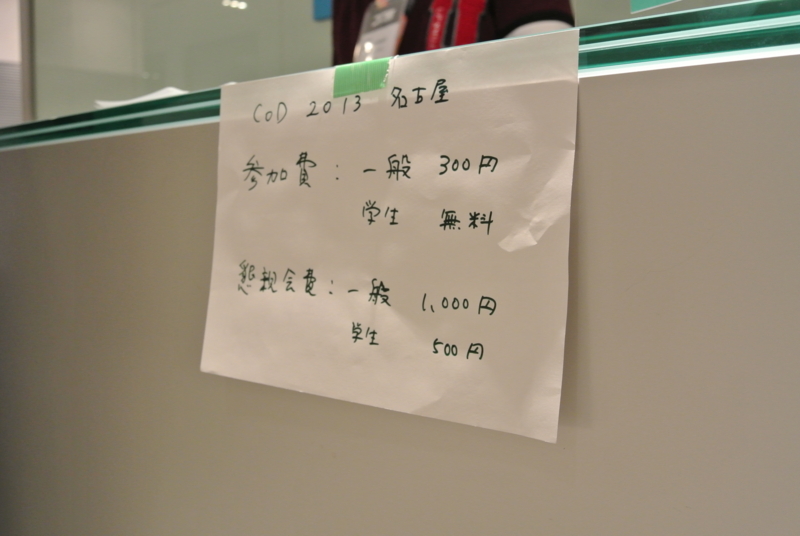 CoD 2013 名古屋
参加費：一般 300円
学生 無料
懇親会費：一般 1,000円
学生 500円